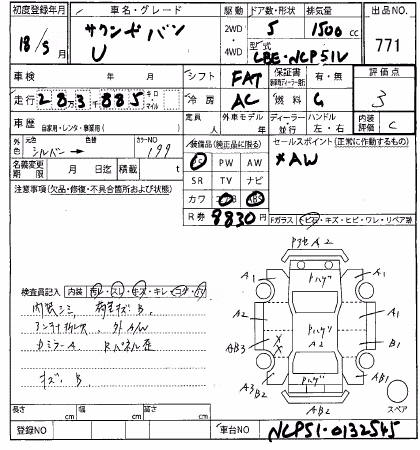 初度登録年月 車名・グレード 駆動 ドア数・形状 排気量 出品NO.
18/5月 サクシードバン U 2WD・4WD 5 1500cc 771
型式 CBE-NCP51V
車検 年 月 シフト FAT 保証書 有・無 評価点
走行 283千885 キロ・マイル 冷房 AC 燃料 G 3
車歴 自家用・レンタ・事業用( ) 定員 人 外車モデル 年 ディーラー・並行 ハンドル 左・右 内装評価 C
外色 元色 シルバー 色替 カラーNO 199 装備品(純正品に限る) セールスポイント(正常に作動するもの)
名義変更期限 月 日迄 積載 t PS PW AW *AW
SR TV ナビ
注意事項(欠品・修復・不具合箇所および状態) カワ エアB ABS
R券 8830円 Fガラス
キズ・ヒビ・ワレ・リペア跡
検査員記入 内装 汚レ・スレ・キズ・キレ・コゲ・穴
内張シミ 荷室キズ B
アンテナ折レ 外A/W
Cミラー A Rパネル歪
キズ B
A2
A1 トハゲ A1
A2 トハゲ A1
AB3 A2 B1
A3 B2 トハゲ AB1
AB2
スペア
長さ cm 幅 cm 高さ cm
登録NO 車台NO NCP51-0132545